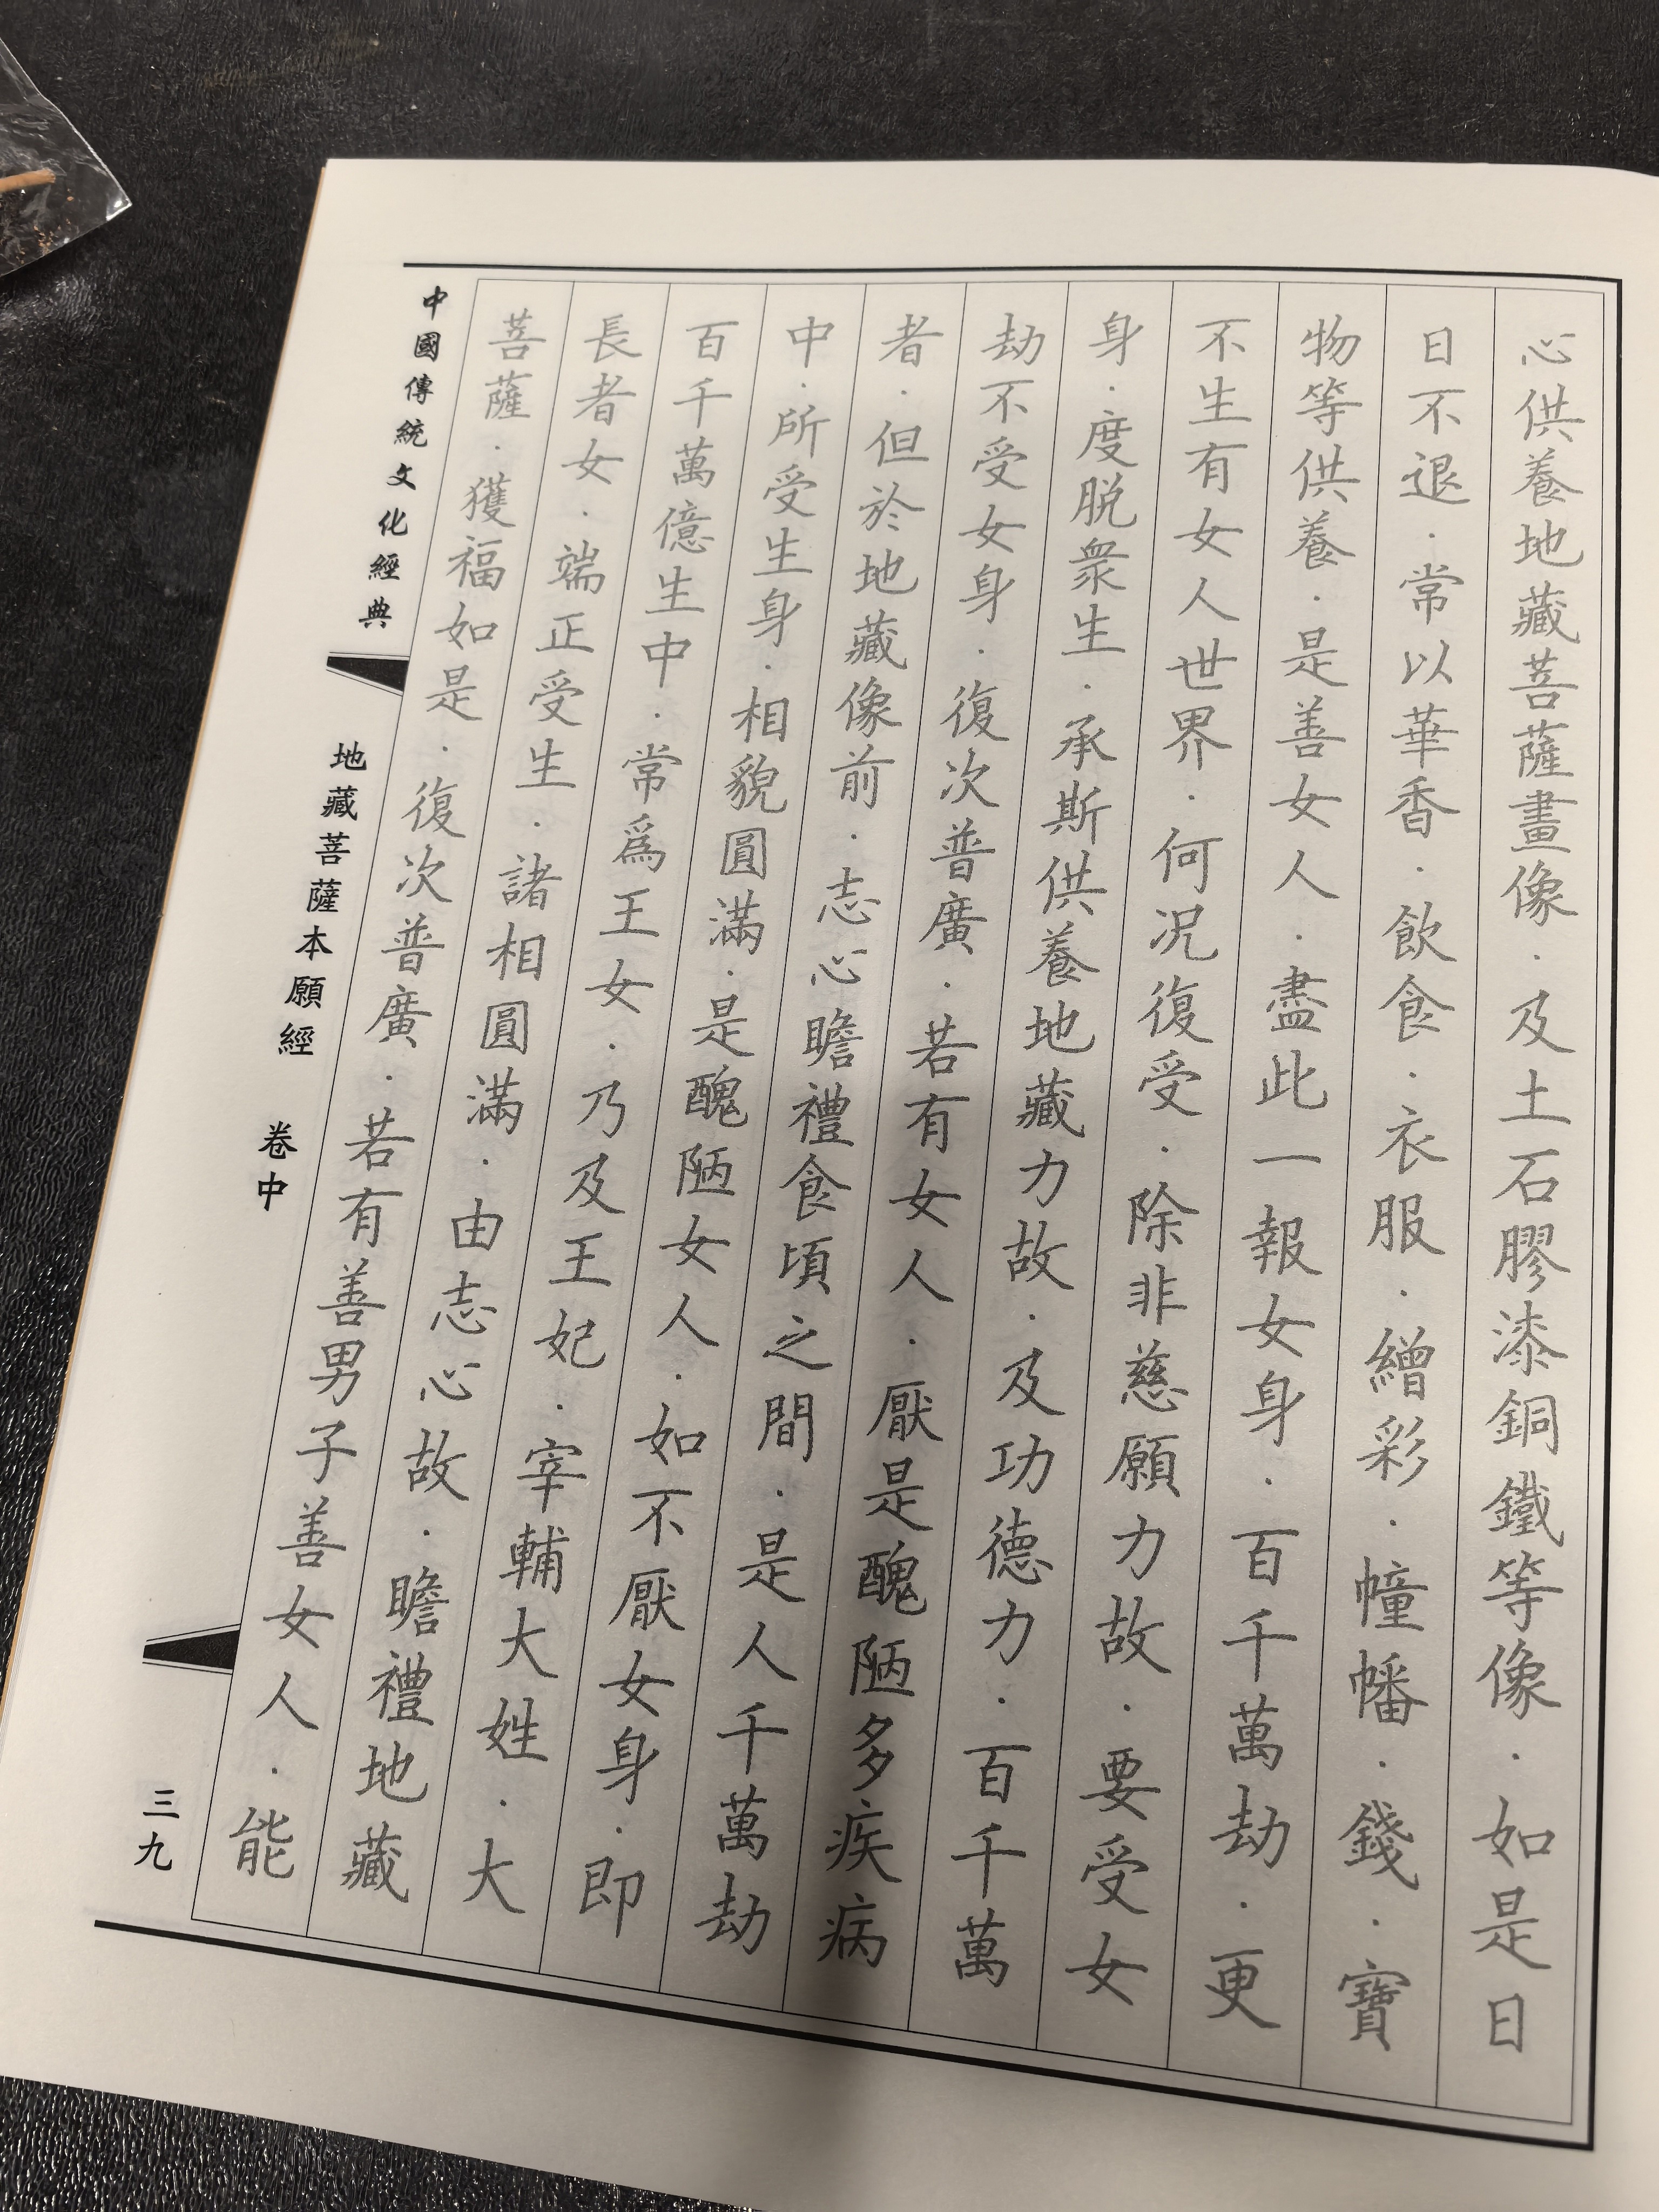 心供養地藏菩薩畫像·及土石膠漆銅鐵等像·如是日
日不退·常以華香·飲食·衣服·繒彩·幢幡·錢·寶
物等供養·是善女人·盡此一報女身·百千萬劫·更
不生有女人世界·何況復受·除非慈願力故·要受女
身·度脱衆生·承斯供養地藏力故·及功德力·百千萬
劫不受女身·復次普廣·若有女人·厭是醜陋多疾病
者·但於地藏像前·志心瞻禮食頃之間·是人千萬劫
中·所受生身·相貌圓滿·是醜陋女人·如不厭女身·即
百千萬億生中·常爲王女·乃及王妃·宰輔大姓·大
長者女·端正受生·諸相圓滿·由志心故·瞻禮地藏
菩薩·獲福如是·復次普廣·若有善男子善女人·能
中國傳統文化經典
地藏菩薩本願經 卷中
三九